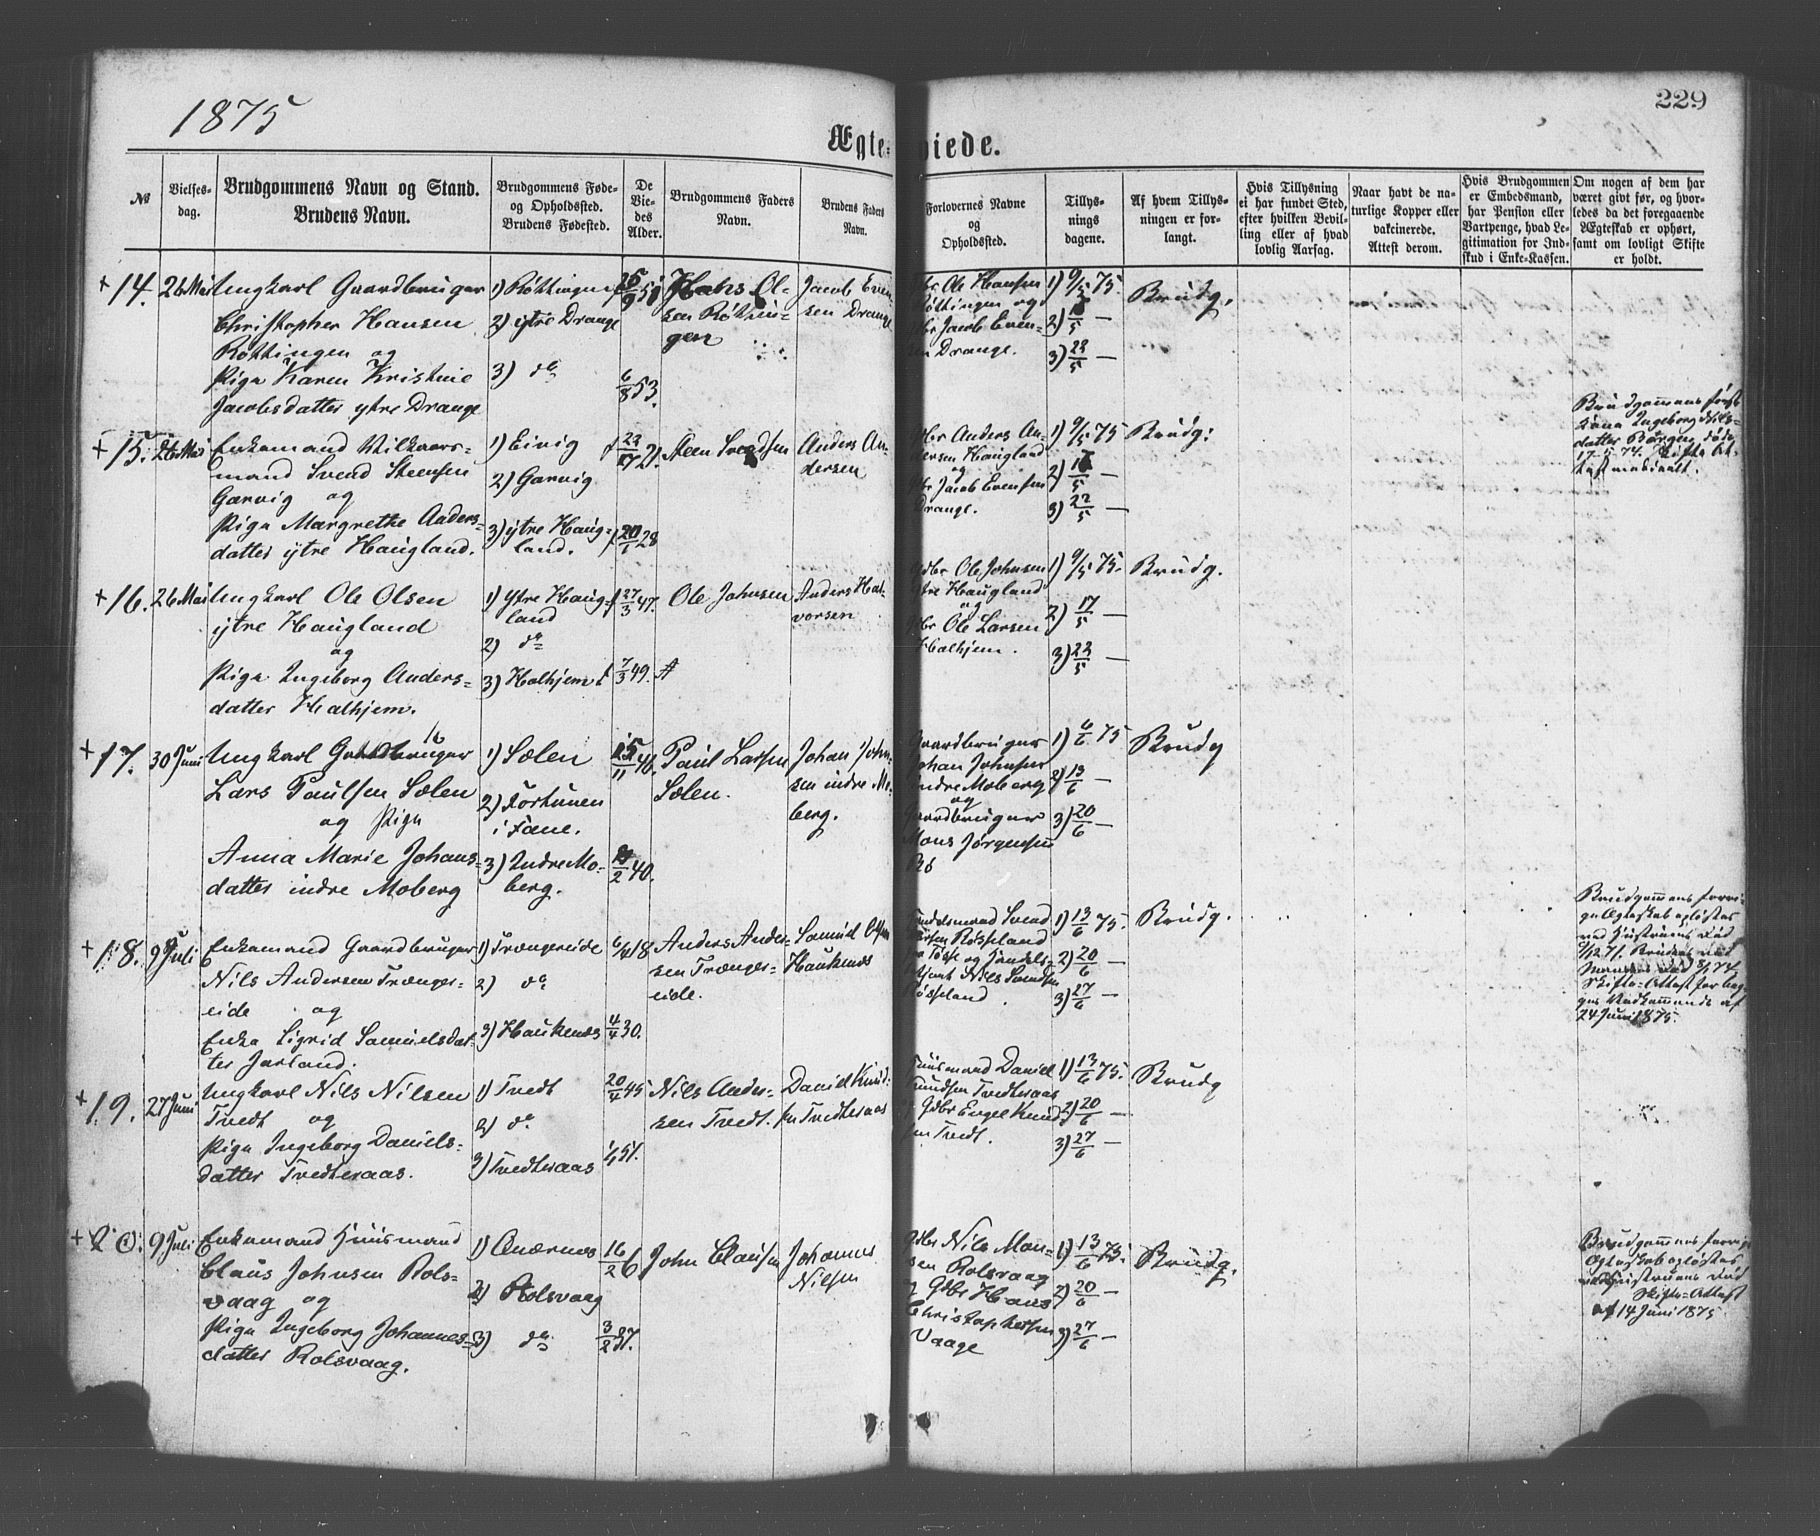 1875
229
Ægte-
viede.
№
Vielses-
dag.
Brudgommens Navn og Stand.
Brudens Navn.
Brudgommens Føde-
og Opholdssted.
Brudens Fødested.
De
Vie-
des
Alder.
Brudgommens Faders
Navn.
Brudens Faders
Navn.
Forlovernes Navne
og
Opholdssted.
Tillys-
nings
dagene.
Af hvem Tillys-
ningen er for-
langt.
Hvis Tillysning
ei har fundet Sted,
efter hvilken Bevil-
ling eller af hvad
lovlig Aarsag.
Naar havt de na-
turlige Kopper eller
vakcinerede.
Attest derom.
Hvis Brudgommen
er Embedsmand,
har Pension eller
Vartpenge, hvad Le-
gitimation for Ind-
skud i Enke-Kassen.
Om nogen af dem har
været givt før, og hvor-
ledes da det foregaaende
Ægteskab er ophørt,
samt om lovligt Skifte
er holdt.
+ 14.
26 Mai
Ungkarl Gaardbruger
Christopher Hansen
Røttingen og
Pige Karen Kristine
Jacobsdatter ytre Drange
1) Røttingen
2) ytre Drange
3) do
6/8 53.
Hans Ol-
sen Røttin-
gen
Jacob Even-
sen Drange
Gbr Ole Hansen
Røttingen og
Gbr Jacob Even-
sen Drange.
1) 9/5 75.
2) 17/5 —
3) 22/5 —
Brudg.
+ 15.
26 Mai
Enkemand Vilkaars-
mand Svend Steensen
Garvig og
Pige Margrethe Anders-
datter ytre Haugland.
1) Eivig
2) Garvig
3) ytre Haug-
land.
20/1 28
Steen Svendsen
Anders An-
dersen
Gbr Anders An-
dersen Haugland
og
Gbr Jacob Evensen
Drange.
1) 9/5 75
2) 17/5 —
3) 22/5 —
Brudg:
Brudgommens første
Kone Ingeborg Nils-
datter Børgen døde
17-5-74. Skifte At-
test
+ 16.
26 Mai
Ungkarl Ole Olsen
ytre Haugland
og
Pige Ingeborg Anders-
datter Halhjem.
1) Ytre Haug-
land
2) do
3) Halhjem
27/3 47.
7/3 49.
Ole Johnsen
Anders Hal-
vorsen
Gdbr Ole Johnsen
ytre Haugland
og
Gbr Ole Larsen
Halhjem.
1) 9/5 75.
2) 17/5 —
3) 22/5 —
Brudg.
+ 17.
30 Juni
Ungkarl Gaardbruger
Lars Paulsen Sælen
og Pige
Anna Marie Johans-
datter indre Moberg
1) Sælen
2) Fortunen
i Fane.
3) Indre Mo-
berg.
15/11 46.
Paul Larsen
Sælen.
Johan John-
sen indre Mo-
berg.
Gaardbruger
Johan Johnsen
indre Moberg
og
Gaardbruger
Mons Jørgensen
Rø
1) 6/6 75
2) 13/6 —
3) 20/6 —
Brudg
+ 18.
9 Juli
Enkemand Gaardbruger
Nils Andersen Trænger-
eide og
Enke Sigrid Samuelsdat-
ter Jarland.
1) Trængereide
2) do
3) Haukenæs
6/4 18
4/4 30.
Anders Ander-
sen Trænger-
eide.
Samuel Olsen
Haukenæs
Handelsmand Svend
Larsen Røsseland
Nils Svendsen
Røsseland
1) 13/6 75.
2) 20/6 —
3) 27/6 —
Brudg.
Brudgommens forri-
ge Ægteskab opløstes
ved Hustruens Død
Skifte-Attest for beg-
ges Vedkommende af
24 Juni 1875.
+ 19.
27 Juni
Ungkarl Nils Nilsen
Tvedt og
Pige Ingeborg Daniels-
datter Tvedteraas.
1) Tvedt
2) do
3) Tvedteraas
20/4 45
1/4 51.
Nils Ander-
sen Tvedt.
Daniel Knud-
sen Tvedteraas
Huusmand Daniel
Knudsen Tvedteraas
Gdbr Engel Knud-
sen Tvedt.
1) 13/6 75.
2) 20/6 —
3) 27/6 —
Brudg
+ 20.
9 Juli
Enkemand Huusmand
Claus Johnsen Rols-
vaag og
Pige Ingeborg Johannes-
datter Rolsvaag.
1) Anærnes
2) Rolsvaag
3) do
16/2 6
3/2 37.
John Clausen
Johannes
Nilsen
Gdbr Nils Mon-
sen Rolsvaag
og Gbr Hans
Christophersen
Vaage
1) 13/6 75.
2) 20/6 —
3) 27/6 —
Brudg.
Brudgommens forrige
Ægteskab opløstes
ved Hustruens Død
Skifte-Attest
af 14 Juni 1875